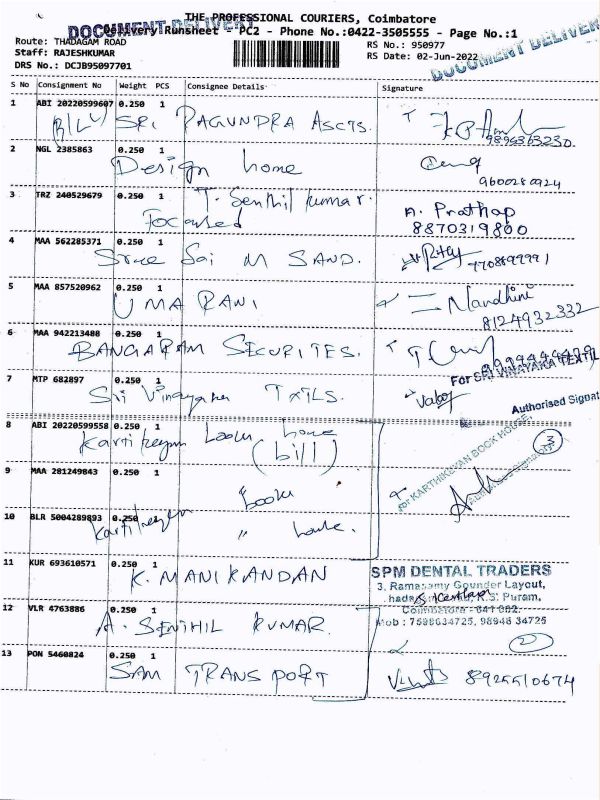 THE PROFESSIONAL COURIERS, Coimbatore
DOCUMENT DELIVERY
Delivery Runsheet - PC2 - Phone No.:0422-3505555 - Page No.:1
Route: THADAGAM ROAD
RS No.: 950977
Staff: RAJESHKUMAR
RS Date: 02-Jun-2022
DOCUMENT DELIVER
DRS No.: DCJB95097701
S No Consignment No Weight PCS Consignee Details Signature
1 ABI 20220599607 0.250 1
SRI RAGUNDRA ASCTS.
9894363230.
2 NGL 2385863 0.250 1
Design home
9600280924
3 TRZ 240529679 0.250 1 T. Senthil kumar.
Focused
A. Prathap
8870319800
4 MAA 562285371 0.250 1
Sree Sai M SAND.
5 MAA 857520962 0.250 1
UMA RANI
Nandhini
8124932332
6 MAA 942213488 0.250 1
BANGARAM SECURITES.
7 MTP 682897 0.250 1
Sri Vinayaka TXTLS.
For SRI VINAYAKA TEXTIL
Authorised Signat
8 ABI 20220599558 0.250 1
Kartikeyan book
(bill)
3
for KARTHIKEYAN BOOK HOUSE,
9 MAA 281249843 0.250 1
book
10 BLR 5004289893 0.250
Kartikeyan "
11 KUR 693610571 0.250 1
K. MANIKANDAN
SPM DENTAL TRADERS
3, Ramasamy Gounder Layout,
R.S. Puram,
Coimbatore - 641 002.
Mob : 7598634725, 98948 34725
12 VLR 4763886 0.250 1
A. SENTHIL KUMAR
2
13 PON 5460824 0.250 1
SAM TRANSPORT
8925510674